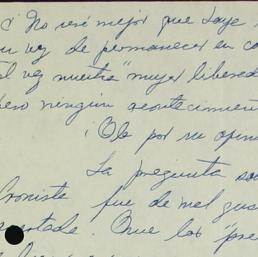 ¿No será mejor que Laye
vez de permanecer en co
vez nuestra "mujer liberad
pero ningún acontecimient
¡Ole por su opin
La pregunta so
Cronista fue de mal gus
Que las "pre